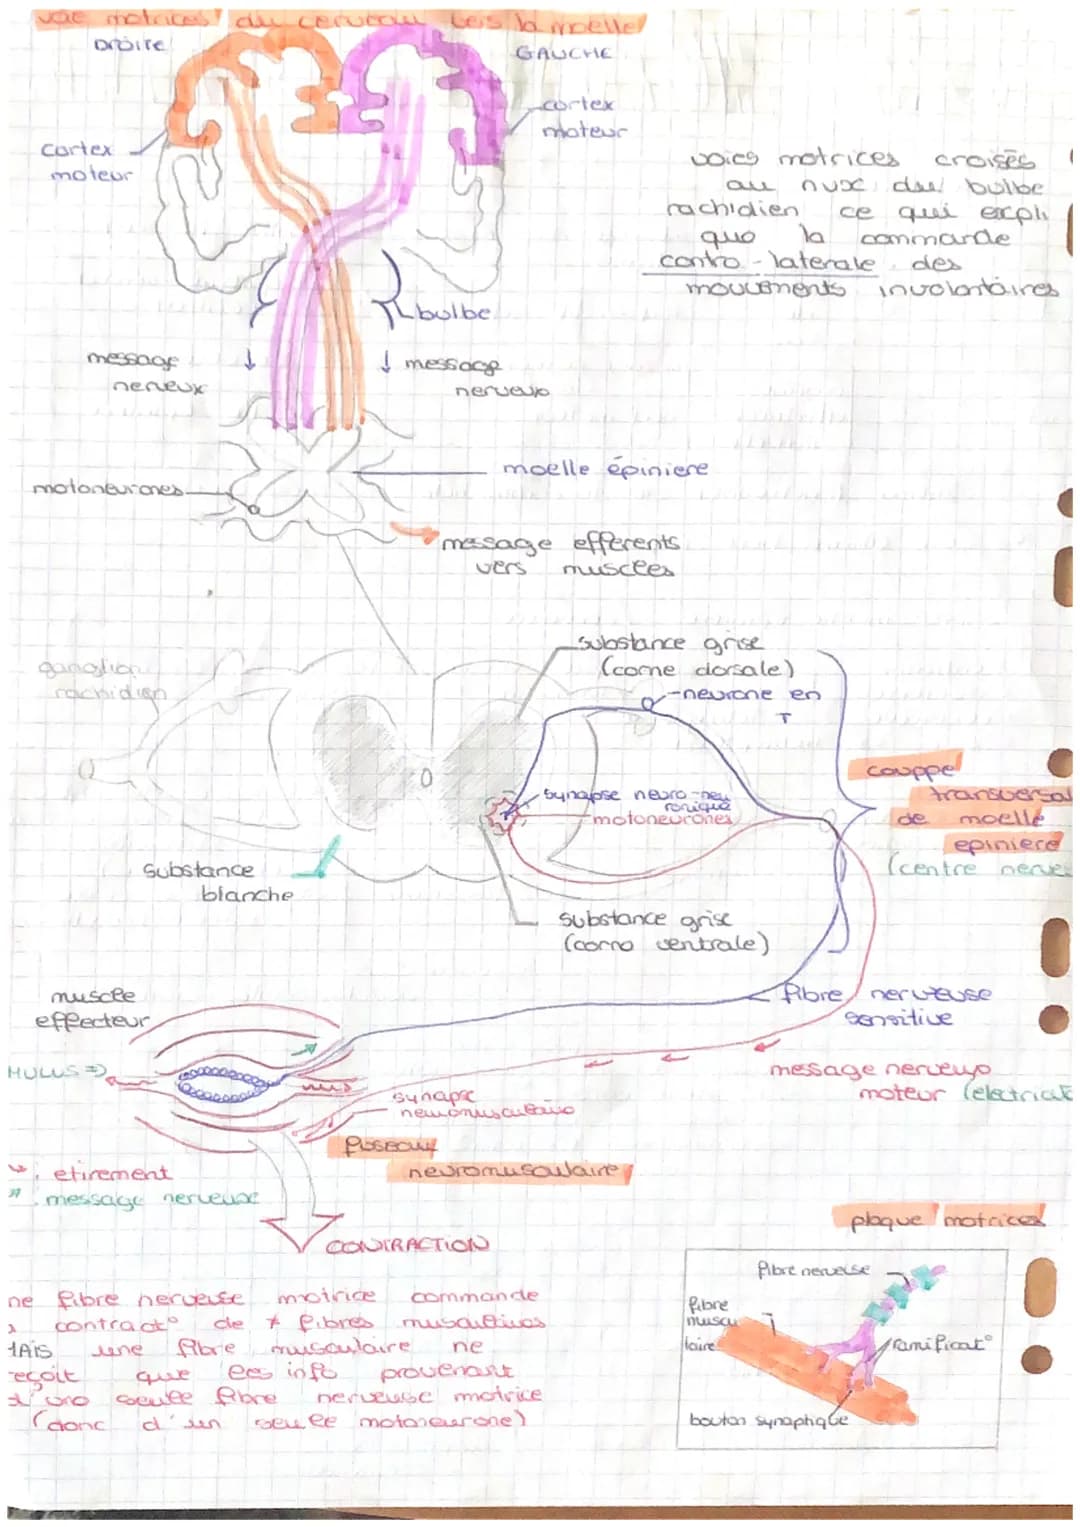 voie motrices du cerveau vers la moelle
DROITE
GAUCHE
cortex
moteur
cortex
moteur
voies motrices croisés
au nvx du bulbe
rachidien ce qui expli
que la commande
contro-laterale des
mouvements involontaires
bulbe
message
nerveux
message
nerveux
moelle épiniere
motoneurones
message efferents
vers muscles
substance grise
(corne dorsale)
neurone en
T
ganglion
rachidien
synapse neuro-neu
ronique
motoneurones
couppe
transversal
de moelle
epiniere
(centre nerve
substance
blanche
substance grise
(corne ventrale)
muscle
effecteur
fibre nerveuse
sensitive
MULUS =>
message nerveux
moteur (electriat
synapse
neuromusculaire
fuseau
neuromusculaire
: etirement
: message nerveux
CONTRACTION
plaque motrices
ne fibre nerveuse motrice commande
contract° de ≠ fibres musculaires
MAIS une fibre musculaire ne
reçoit que les info provenant
d'une seule fibre nerveuse motrice
(donc d'un seule motoneurone)
fibre nerveuse
fibre
muscu
laire
ramificat°
bouton synaptique